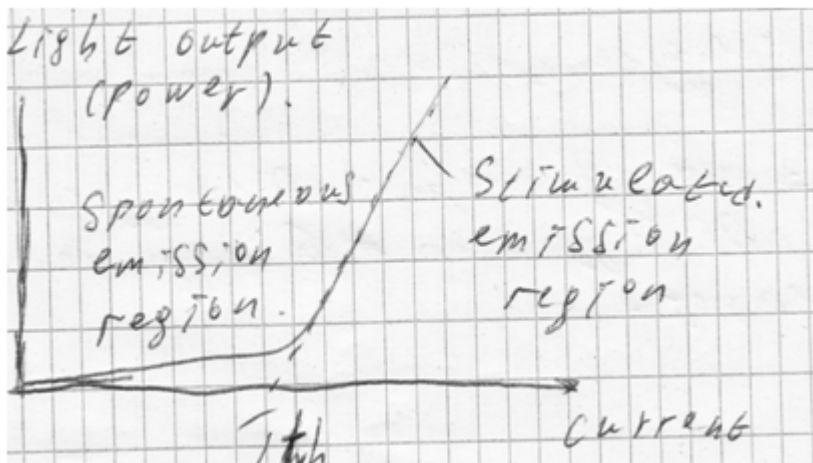 Light output
(power).
Spontaneous
emission
region.
Stimulated.
emission
region
Ith
Current